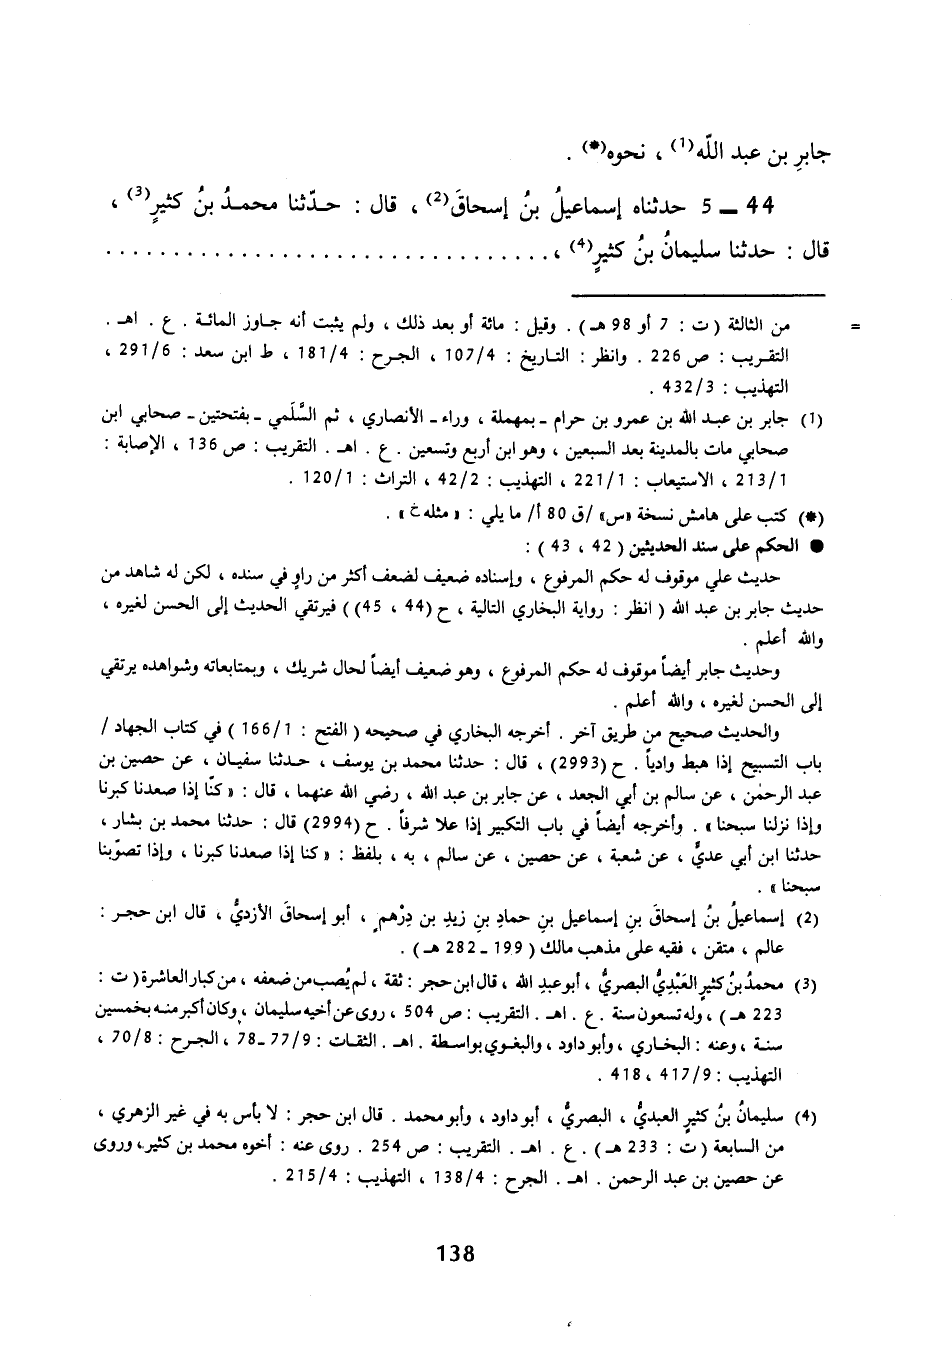 جابرِ بن عبد اللّه(1) ، نحوه(*) .
44 ــ 5 حدثناه إسماعيلُ بنُ إسحاقَ(2) ، قال : حدّثنا محمدُ بنُ كثيرٍ(3) ،
قال : حدثنا سليمانُ بنُ كثيرٍ(4) ، . . . . . . . . . . . . . . . . . . . . . . . . . . . . . . . . .
= من الثالثة ( ت : 7 أو 98 هـ ) . وقيل : مائة أو بعد ذلك ، ولم يثبت أنه جاوز المائة . ع . اهـ .
التقريب : ص 226 . وانظر : التاريخ : 107/4 ، الجرح : 181/4 ، ط ابن سعد : 291/6 ،
التهذيب : 432/3 .
(1) جابر بن عبد الله بن عمرو بن حرام ـ بمهملة ، وراء ـ الأنصاري ، ثم السَّلَمي ـ بفتحتين ـ صحابي ابن
صحابي مات بالمدينة بعد السبعين ، وهو ابن أربع وتسعين . ع . اهـ . التقريب : ص 136 ، الإصابة :
213/1 ، الاستيعاب : 221/1 ، التهذيب : 42/2 ، التراث : 120/1 .
(*) كتب على هامش نسخة «س» /ق 80 أ/ ما يلي : « مثله خ » .
● الحكم على سند الحديثين ( 42 ، 43 ) :
حديث علي موقوف له حكم المرفوع ، وإسناده ضعيف لضعف أكثر من راوٍ في سنده ، لكن له شاهد من
حديث جابر بن عبد الله ( انظر : رواية البخاري التالية ، ح (44 ، 45) ) فيرتقي الحديث إلى الحسن لغيره ،
والله أعلم .
وحديث جابر أيضاً موقوف له حكم المرفوع ، وهو ضعيف أيضاً لحال شريك ، وبمتابعاته وشواهده يرتقي
إلى الحسن لغيره ، والله أعلم .
والحديث صحيح من طريق آخر . أخرجه البخاري في صحيحه ( الفتح : 166/1 ) في كتاب الجهاد /
باب التسبيح إذا هبط وادياً . ح (2993) ، قال : حدثنا محمد بن يوسف ، حدثنا سفيان ، عن حصين بن
عبد الرحمٰن ، عن سالم بن أبي الجعد ، عن جابر بن عبد الله ، رضي الله عنهما ، قال : « كنّا إذا صعدنا كبرنا
وإذا نزلنا سبحنا » . وأخرجه أيضاً في باب التكبير إذا علا شرفاً . ح (2994) قال : حدثنا محمد بن بشار ،
حدثنا ابن أبي عديٍّ ، عن شعبة ، عن حصين ، عن سالم ، به ، بلفظ : « كنا إذا صعدنا كبرنا ، وإذا تصوّبنا
سبحنا » .
(2) إسماعيلُ بنُ إسحاقَ بنِ إسماعيل بنِ حمادِ بنِ زيدِ بن دِرْهمٍ ، أبو إسحاقَ الأزديُّ ، قال ابن حجر :
عالم ، متقن ، فقيه على مذهب مالك ( 199 ـ 282 هـ ) .
(3) محمدُ بنُ كثيرٍ العَبْدِيُّ البصريُّ ، أبو عبدِ الله ، قال ابن حجر : ثقة ، لم يُصب من ضعفه ، من كبار العاشرة ( ت :
223 هـ ) ، وله تسعون سنة . ع . اهـ . التقريب : ص 504 ، روى عن أخيه سليمان ، وكان أكبر منه بخمسين
سنة ، وعنه : البخاري ، وأبو داود ، والبغوي بواسطة . اهـ . الثقات : 77/9 ـ 78 ، الجرح : 70/8 ،
التهذيب : 417/9 ، 418 .
(4) سليمانُ بنُ كثيرٍ العبديُّ ، البصريُّ ، أبو داود ، وأبو محمد . قال ابن حجر : لا بأس به في غير الزهري ،
من السابعة ( ت : 233 هـ ) . ع . اهـ . التقريب : ص 254 . روى عنه : أخوه محمد بن كثير ، وروى
عن حصين بن عبد الرحمن . اهـ . الجرح : 138/4 ، التهذيب : 215/4 .
138